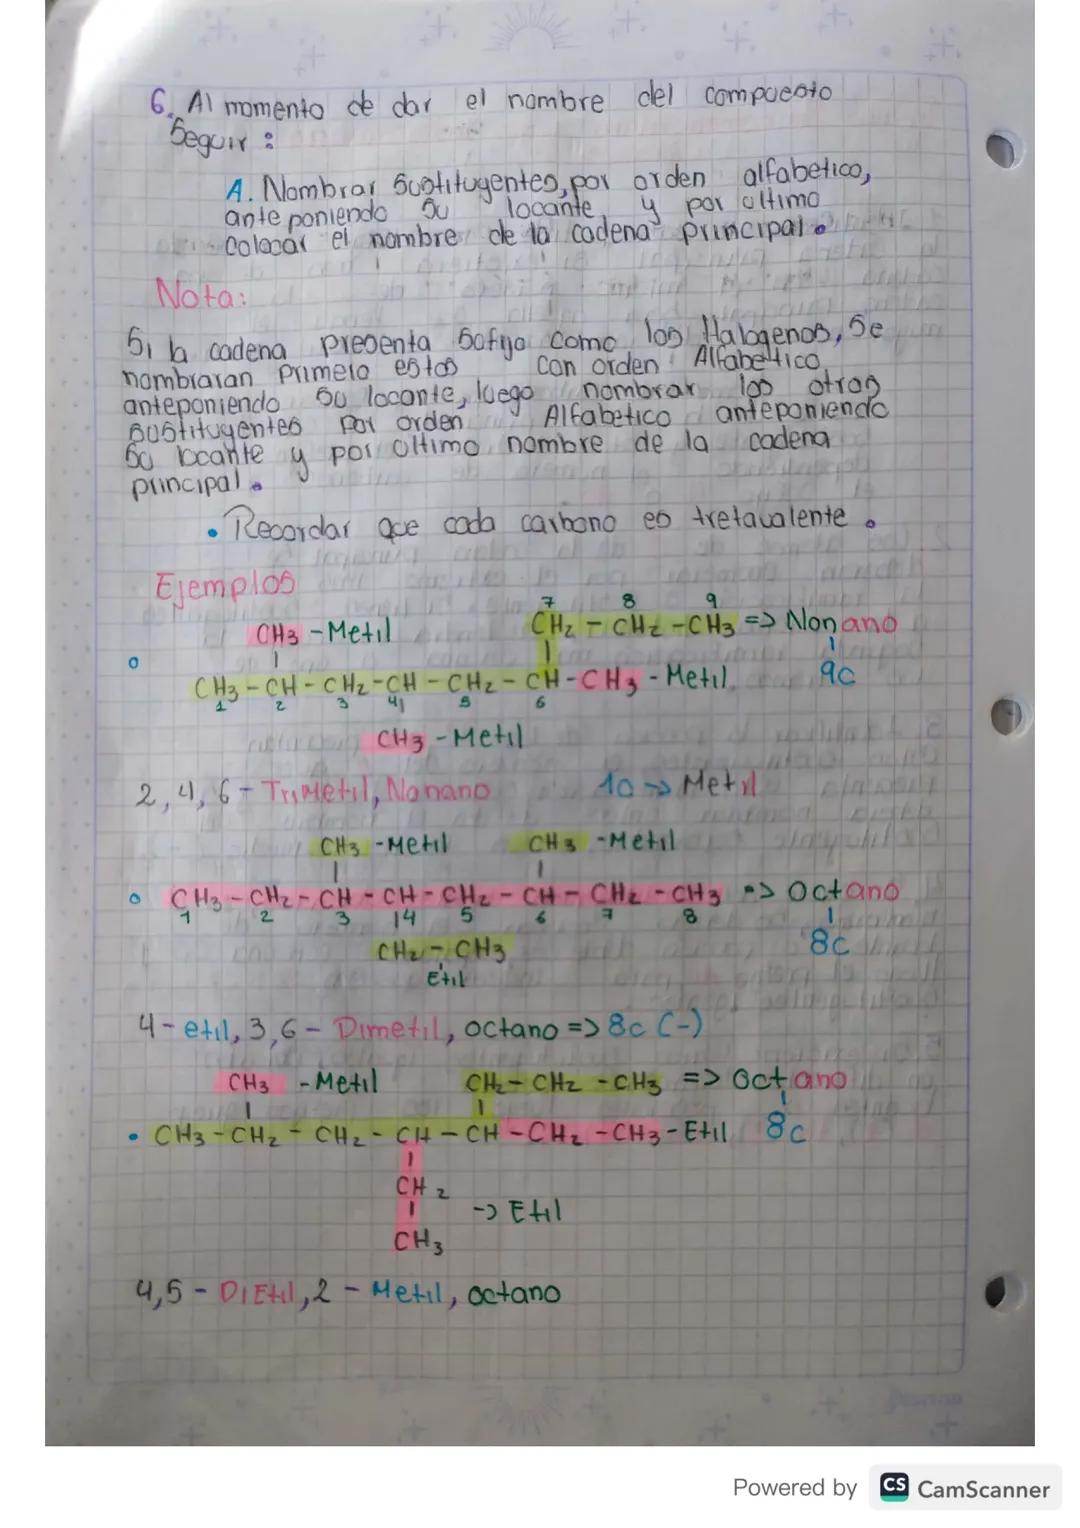 6. Al momento de dar el nombre del compuesto
Seguir :
A. Nombrar Sustituyentes, por orden alfabetico,
ante poniendo su locante, y por ultimo
Colocar el nombre de la cadena principal.
Nota:
Si la cadena presenta Sofijo como los Halogenos, Se
nombraran Primero estos con orden Alfabetico,
anteponiendo su locante, luego nombrar los otros
sustituyentes por orden Alfabetico anteponiendo
Su locante y por ultimo nombre de la cadena
principal.
• Recordar que cada carbono es tretavalente.
Ejemplos
7 8 9
CH3 - Metil CH2 - CH2 - CH3 => Nonano
CH3 - CH - CH2 - CH - CH2 - CH - CH3 - Metil 9c
1 2 3 4 5 6
CH3 - Metil
2,4,6 - TriMetil, Nonano 1c -> Metil
CH3 - Metil CH3 - Metil
CH3 - CH2 - CH - CH - CH2 - CH - CH2 - CH3 => Octano
1 2 3 4 5 6 7 8
CH2 - CH3 8c
Etil
4 - etil, 3,6 - Dimetil, octano => 8c (-)
CH3 - Metil CH2 - CH2 - CH3 => Octano
• CH3 - CH2 - CH2 - CH - CH - CH2 - CH3 - Etil 8c
CH2
-> Etil
CH3
4,5 - DiEtil, 2 - Metil, octano
Powered by CS CamScanner